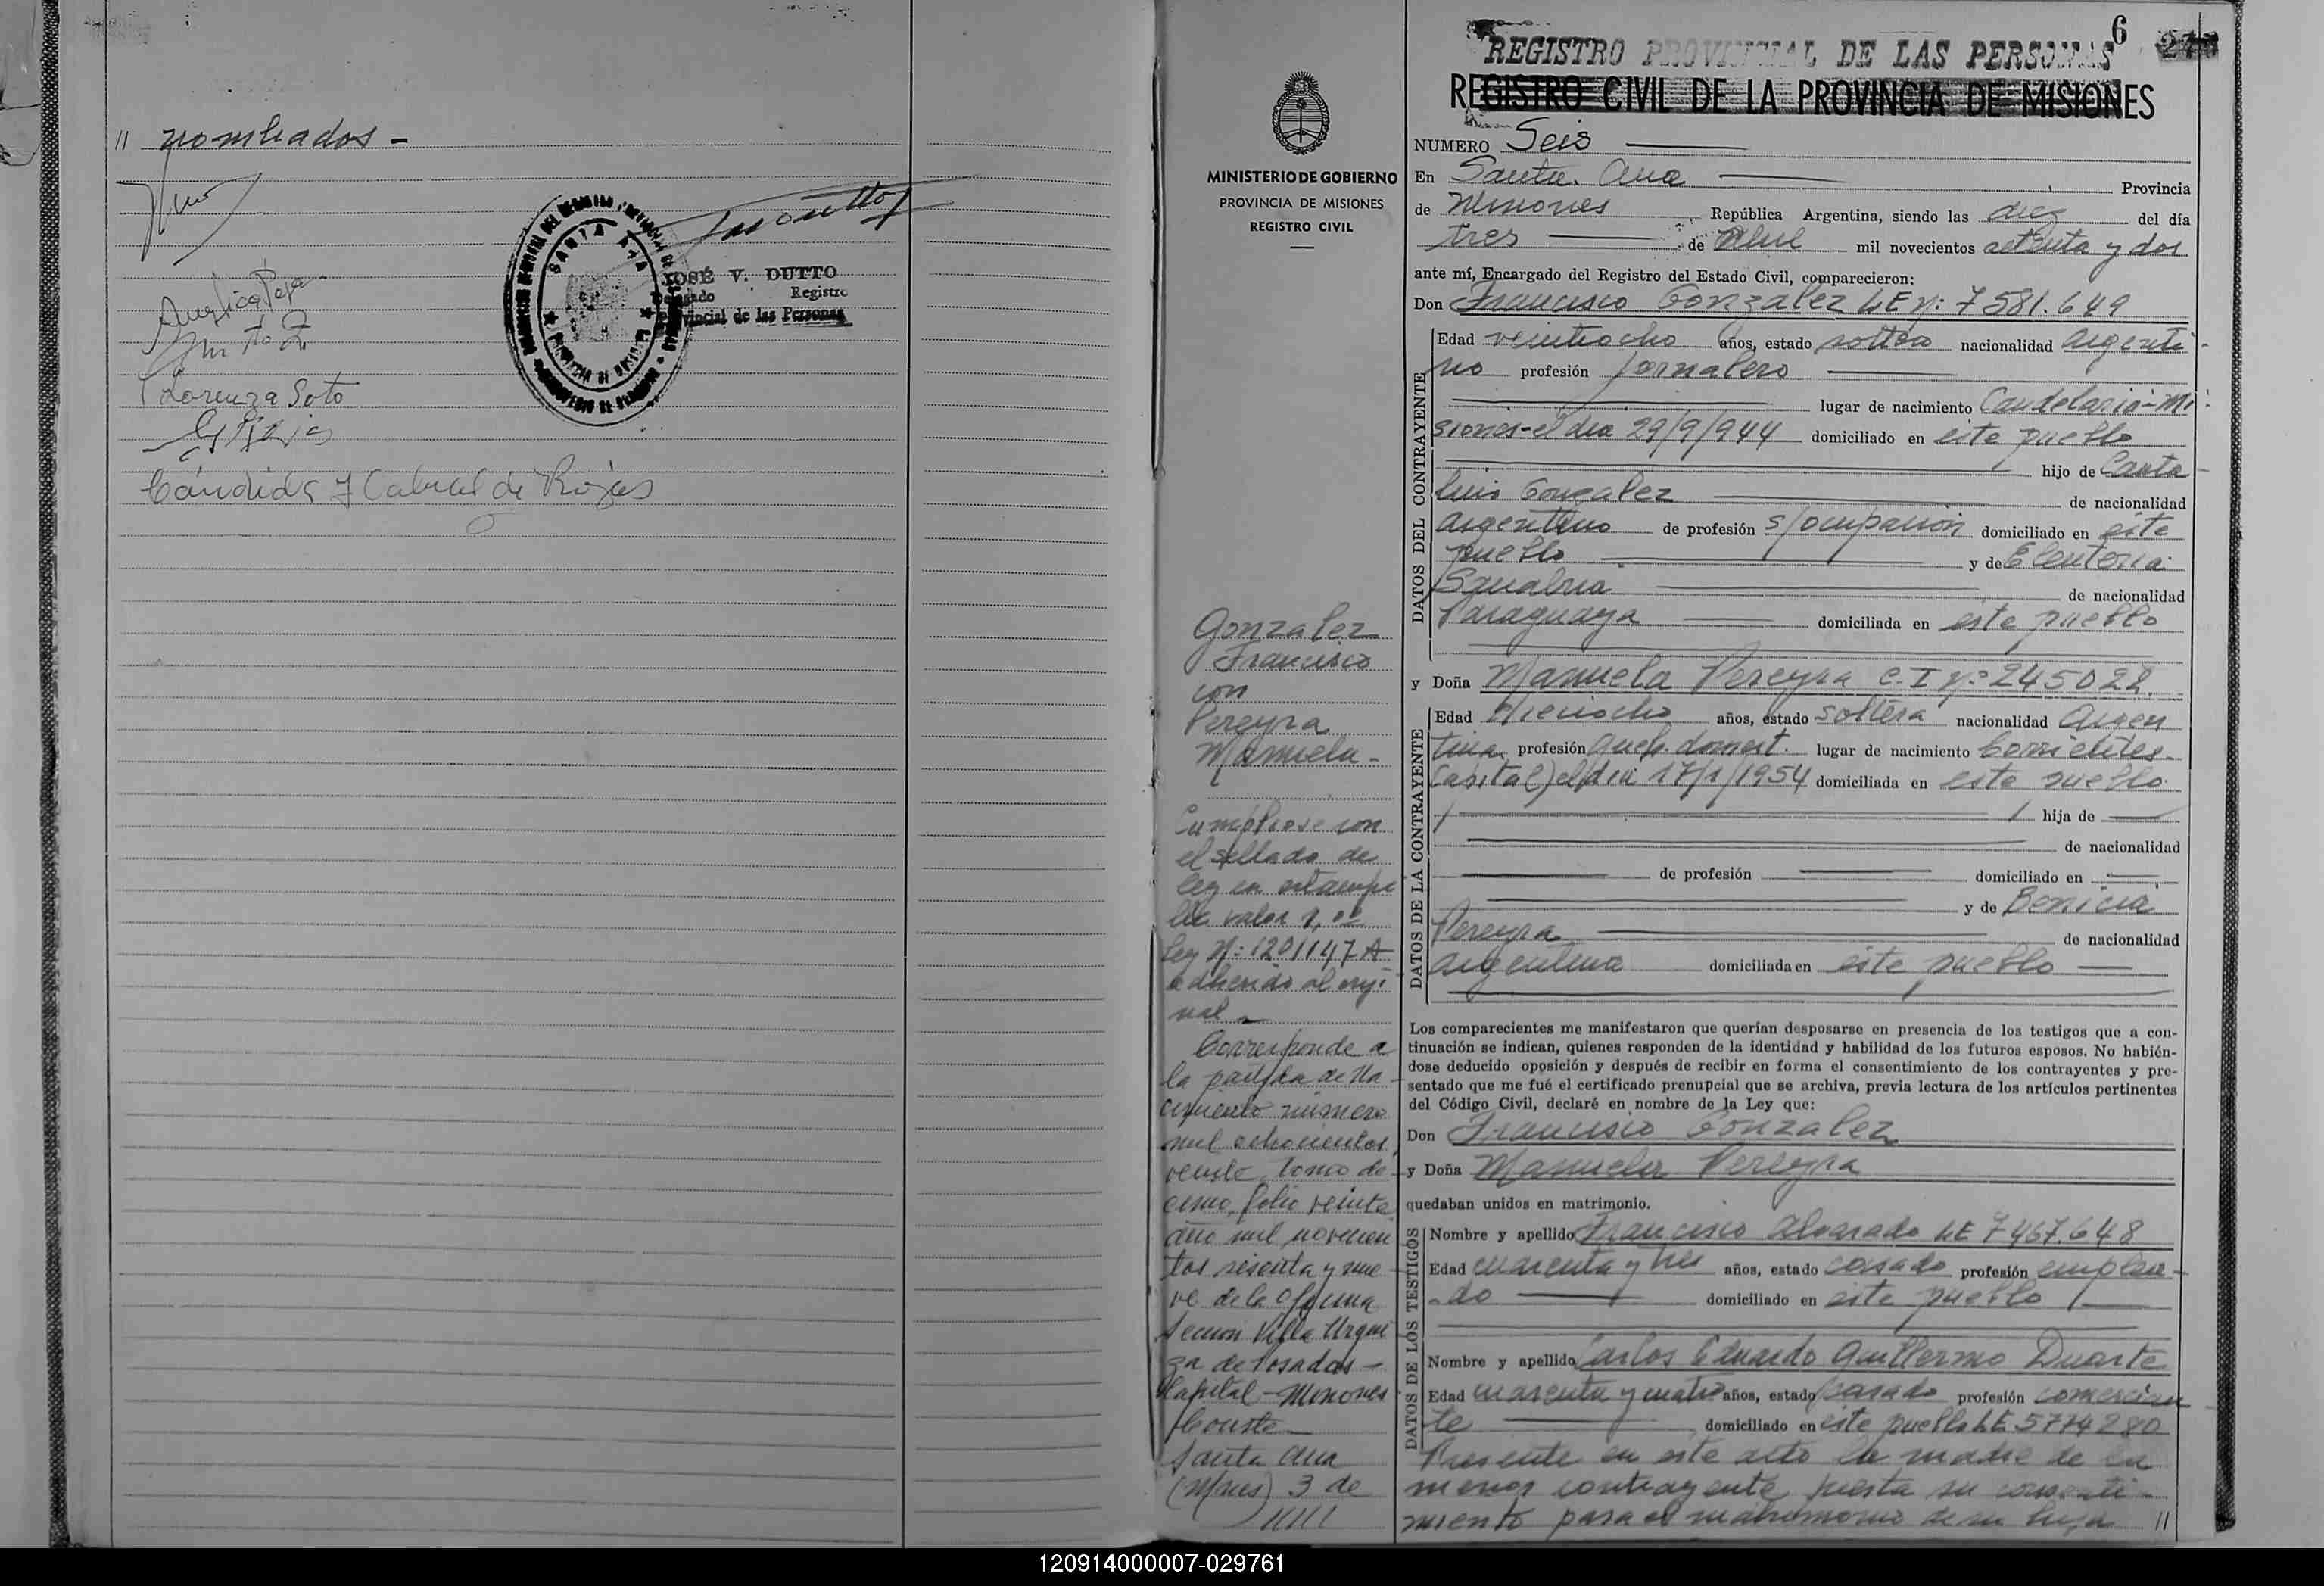 // nombrados -
Angelica
Lorenza Soto
Cándida Y Cabral de Rojas
SANTA ANA
JOSÉ V. DUTTO
Registro
Provincial de las Personas
6
REGISTRO PROVINCIAL DE LAS PERSONAS
REGISTRO CIVIL DE LA PROVINCIA DE MISIONES
MINISTERIO DE GOBIERNO
PROVINCIA DE MISIONES
REGISTRO CIVIL
Gonzalez
Francisco
con
Pereyra
Manuela -
Cumpliose con
el sellado de
ley en estampi
lla valor
ley Nº: 1201147 A
adherido al origi
nal -
Corresponde a
la partida de Na
cimiento número
mil ochocientos
veinte, tomo de
cimo, folio veinte
año mil novecien
tos sesenta y nue
ve de la Oficina
Seccion Villa Urqui
za de Posadas -
Capital - Misiones
Conste -
Santa Ana
(Mnes) 3 de
//////
NUMERO Seis
En Santa Ana Provincia
de Misiones República Argentina, siendo las diez del día
tres de Abril mil novecientos setenta y dos
ante mí, Encargado del Registro del Estado Civil, comparecieron:
Don Francisco Gonzalez LE Nº: 7581.649
DATOS DEL CONTRAYENTE
Edad veintiocho años, estado soltero nacionalidad Argenti-
no profesión Jornalero
lugar de nacimiento Candelaria-Mi-
siones-el dia 29/9/944 domiciliado en este pueblo
hijo de Canta
luis Gonzalez de nacionalidad
argentino de profesión s/ocupasion domiciliado en este
pueblo y de Eleuteria
Sanabria de nacionalidad
Paraguaya domiciliada en este pueblo
y Doña Manuela Pereyra C.I Nº: 245022.
DATOS DE LA CONTRAYENTE
Edad dieciocho años, estado soltera nacionalidad Argen
tina profesión queh. domest. lugar de nacimiento Corrientes-
Capital) el dia 17/1/1954 domiciliada en este pueblo
hija de
de nacionalidad
de profesión domiciliado en
y de Benicia
Pereyra de nacionalidad
argentina domiciliada en este pueblo
Los comparecientes me manifestaron que querían desposarse en presencia de los testigos que a con-
tinuación se indican, quienes responden de la identidad y habilidad de los futuros esposos. No habién-
dose deducido oposición y después de recibir en forma el consentimiento de los contrayentes y pre-
sentado que me fué el certificado prenupcial que se archiva, previa lectura de los artículos pertinentes
del Código Civil, declaré en nombre de la Ley que:
Don Francisco Gonzalez
y Doña Manuela Pereyra
quedaban unidos en matrimonio.
DATOS DE LOS TESTIGOS
Nombre y apellido Francisco Alvarado LE 7467.648
Edad cuarenta y tres años, estado casado profesión emplea-
-do domiciliado en este pueblo
Nombre y apellido Carlos Eduardo Guillermo Duarte
Edad cuarenta y cuatro años, estado casado profesión comercian
te domiciliado en este pueblo LE 5774280
Presente en este acto la madre de la
menor contrayente presta su consenti-
miento para el matrimonio de su hija //
120914000007-029761